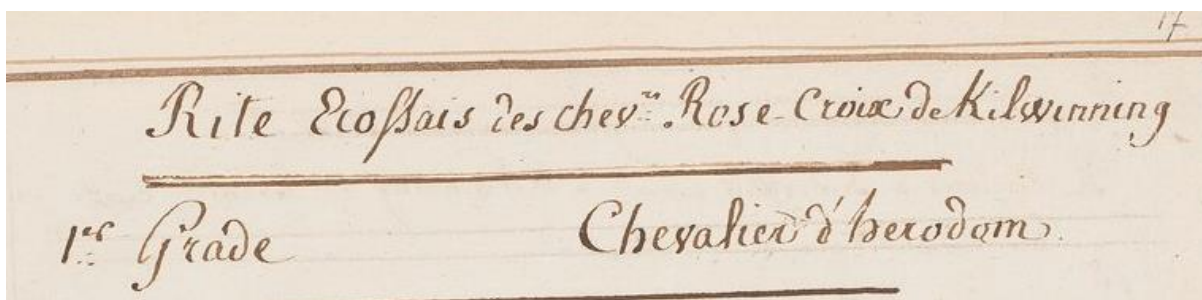 17
Rite Ecoſsais des chev.rs Rose-Croix de Kilwinning
1.er Grade Chevalier d'herodom.